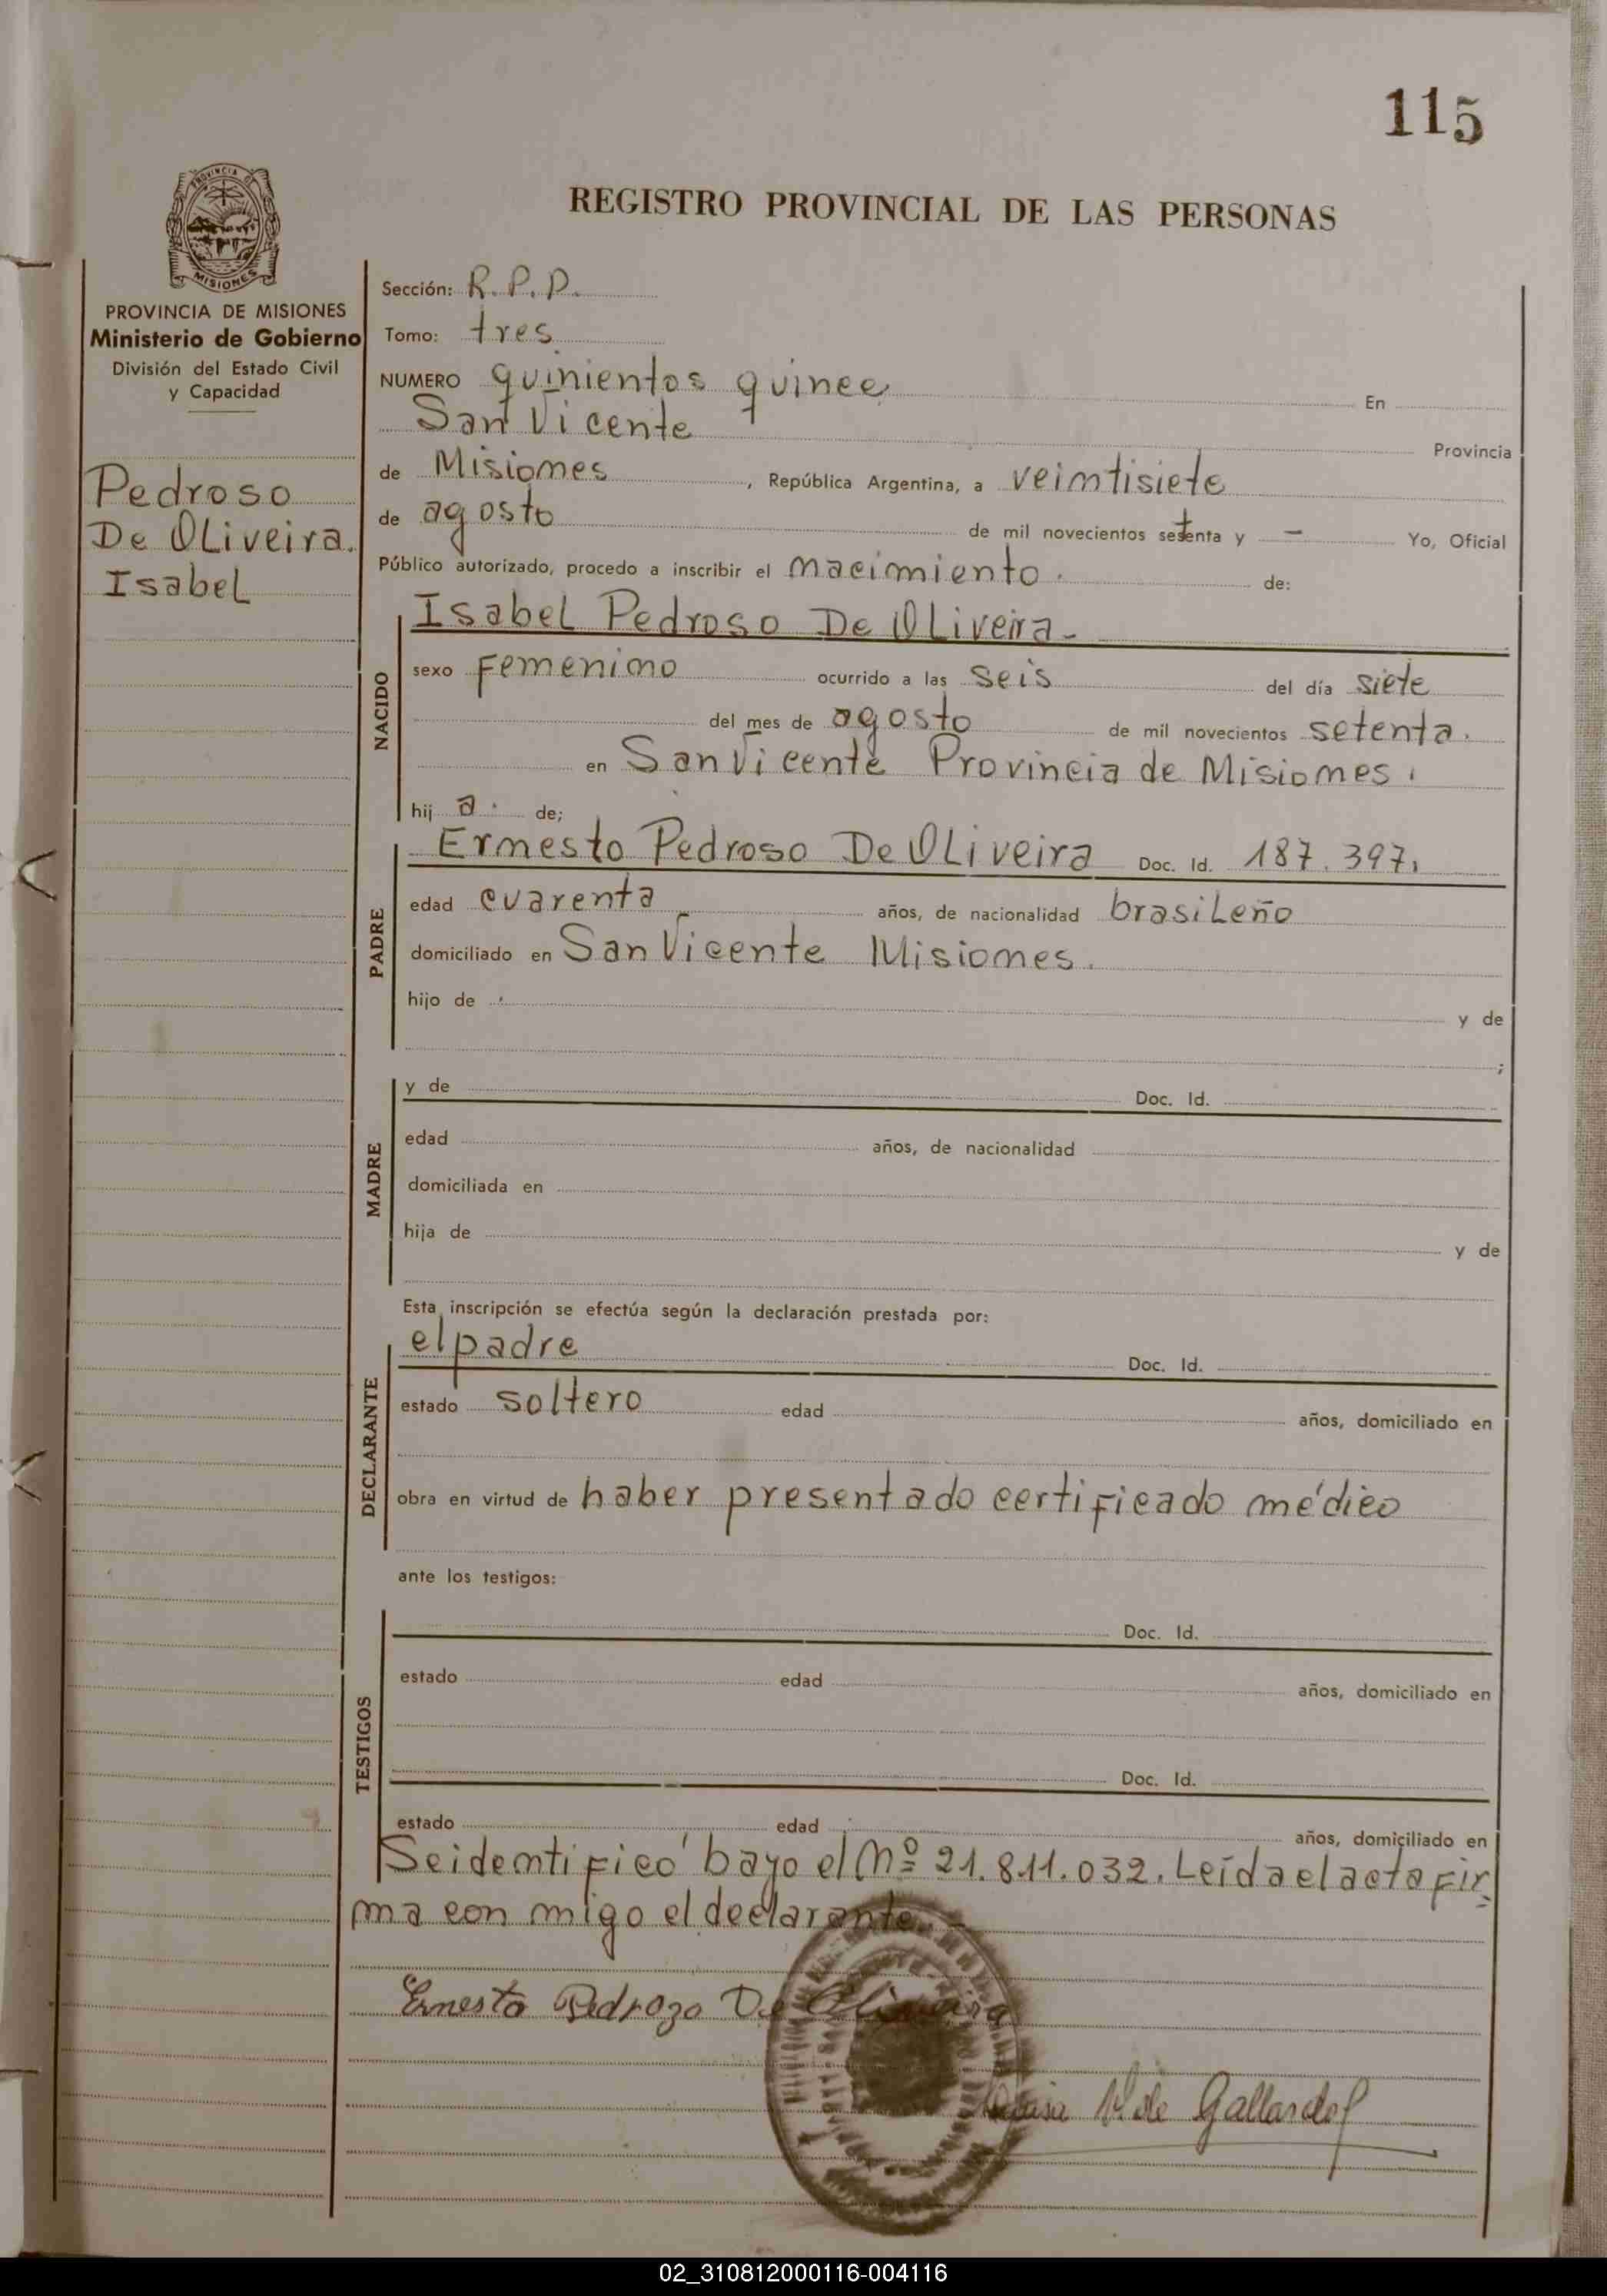 115
PROVINCIA DE
MISIONES
REGISTRO PROVINCIAL DE LAS PERSONAS
PROVINCIA DE MISIONES
Ministerio de Gobierno
División del Estado Civil
y Capacidad
Pedroso
De Oliveira.
Isabel
Sección: R.P.D.
Tomo: tres
NUMERO quinientos quince En
San Vicente Provincia
de Misiones, República Argentina, a veintisiete
de agosto de mil novecientos setenta y - Yo, Oficial
Público autorizado, procedo a inscribir el nacimiento. de:
NACIDO
Isabel Pedroso De Oliveira-
sexo femenino ocurrido a las seis del día siete
del mes de agosto de mil novecientos setenta.
en San Vicente Provincia de Misiones.
hija. de;
PADRE
Ernesto Pedroso De Oliveira Doc. Id. 187.397.
edad cuarenta años, de nacionalidad brasileño
domiciliado en San Vicente Misiones.
hijo de y de
;
MADRE
y de Doc. Id.
edad años, de nacionalidad
domiciliada en
hija de y de
Esta inscripción se efectúa según la declaración prestada por:
DECLARANTE
el padre Doc. Id.
estado soltero edad años, domiciliado en
obra en virtud de haber presentado certificado médico
ante los testigos:
TESTIGOS
Doc. Id.
estado edad años, domiciliado en
Doc. Id.
estado edad años, domiciliado en
Se identificó bayo el Nº 21.811.032. Leída el acta fir-
ma con migo el declarante.-
Ernesto Pedrozo De Oliveira
de Gallardo
02_310812000116-004116